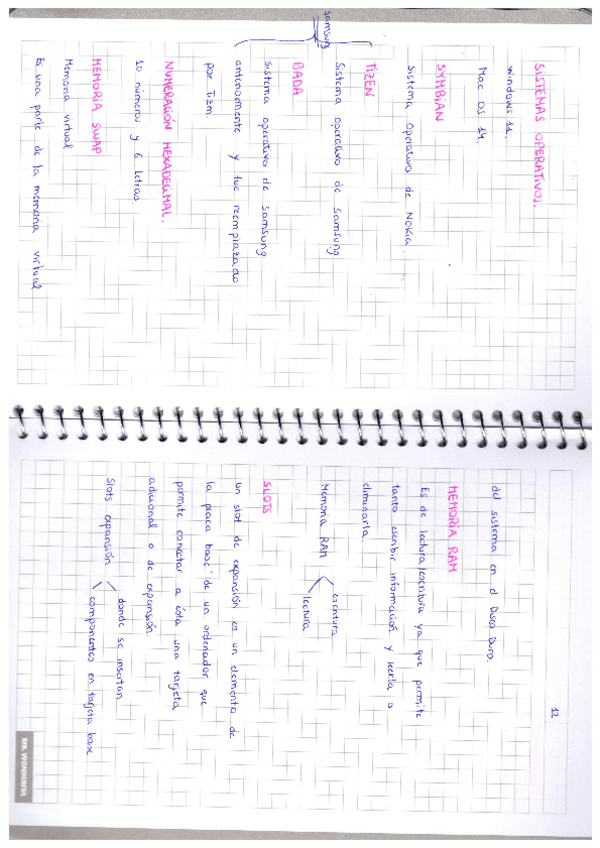 SISTEMAS OPERATIVOS.
Windows 11.
Mac OS 14.
SYMBIAN
Sistema operativo de Nokia.
TIZEN
Sistema operativo de Samsung
BADA
Sistema operativo de Samsung
anteriormente y fue reemplazado
por Tizen.
Samsung
NUMERACIÓN HEXADECIMAL.
10 números y 6 letras.
MEMORIA SWAP
Memoria virtual
Es una parte de la memoria virtual
12
del sistema en el Disco Duro.
MEMORIA RAM
Es de lectura/escritura ya que permite
tanto escribir información y leerla o
eliminarla.
Memoria RAM
escritura
lectura
SLOTS
Un slot de expansión es un elemento de
la placa base de un ordenador que
permite conectar a ésta una tarjeta
adicional o de expansión.
Slots expansión
donde se insertan
componentes en tarjeta base
MR. WONDERFUL